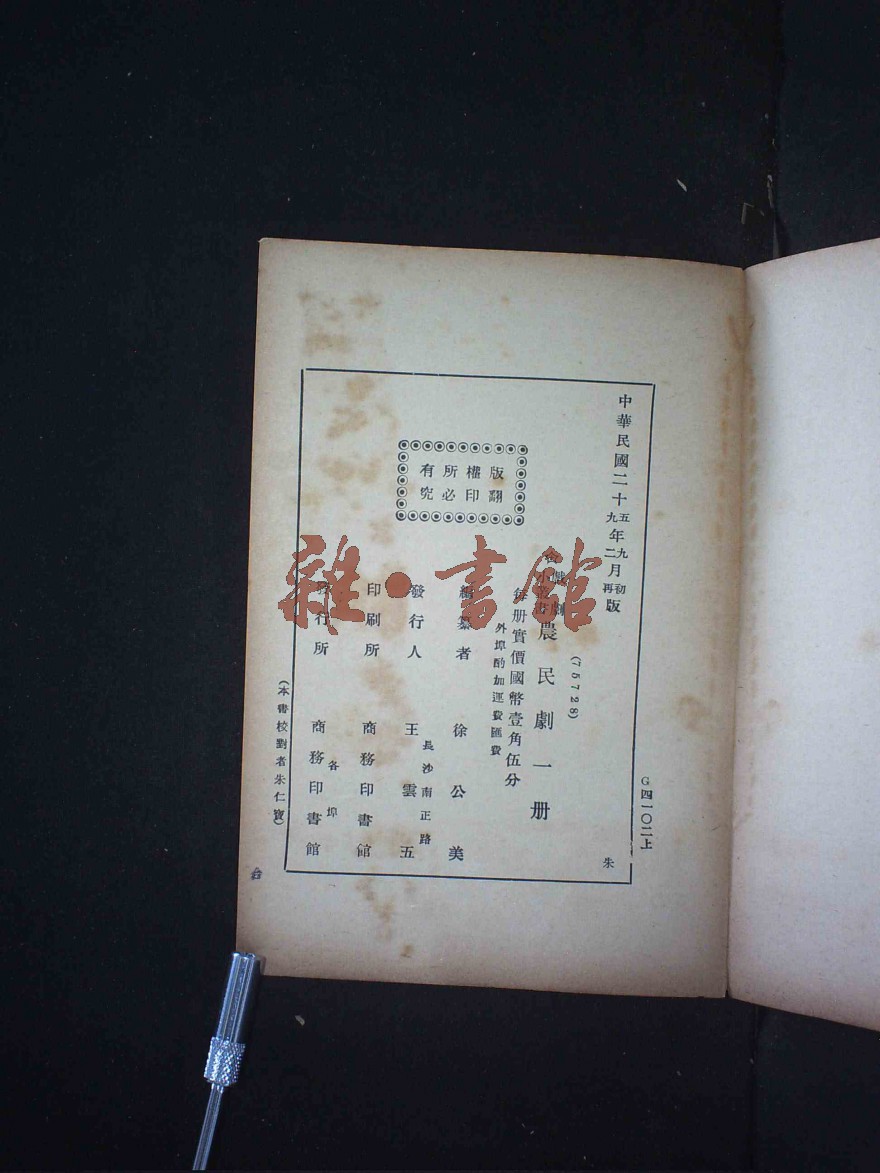 中華民國二十五年九月初版
九二再
(75728)
農民劇一册
每册實價國幣壹角伍分
外埠酌加運費匯費
編纂者 徐公美
發行人 王雲五
長沙南正路
印刷所 商務印書館
發行所 商務印書館
各埠
版權所有
翻印必究
(本書校對者朱仁寶)
G四一〇二上
朱
雜·書館